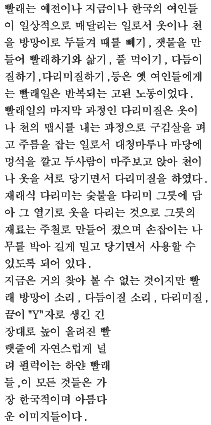 빨래는 예전이나 지금이나 한국의 여인들
이 일상적으로 매달리는 일로서 옷이나 천
을 방망이로 두들겨 때를 빼기, 잿물을 만
들어 빨래하기와 삶기, 풀 먹이기, 다듬이
질하기,다리미질하기,등은 옛 여인들에게
는 빨래일은 반복되는 고된 노동이었다.
빨래일의 마지막 과정인 다리미질은 옷이
나 천의 맵시를 내는 과정으로 구김살을 펴
고 주름을 잡는 일로서 대청마루나 마당에
멍석을 깔고 두사람이 마주보고 앉아 천이
나 옷을 서로 당기면서 다리미질을 하였다.
재래식 다리미는 숯불을 다리미 그릇에 담
아 그 열기로 옷을 다리는 것으로 그릇의
재료는 주철로 만들어 졌으며 손잡이는 나
무를 박아 길게 밀고 당기면서 사용할 수
있도록 되어 있다.
지금은 거의 찾아 볼 수 없는 것이지만 빨
래 방망이 소리, 다듬이질 소리, 다리미질,
끝이 "Y"자로 생긴 긴
장대로 높이 올려진 빨
랫줄에 자연스럽게 널
려 펄럭이는 하얀 빨래
들,이 모든 것들은 가
장 한국적이며 아름다
운 이미지들이다.